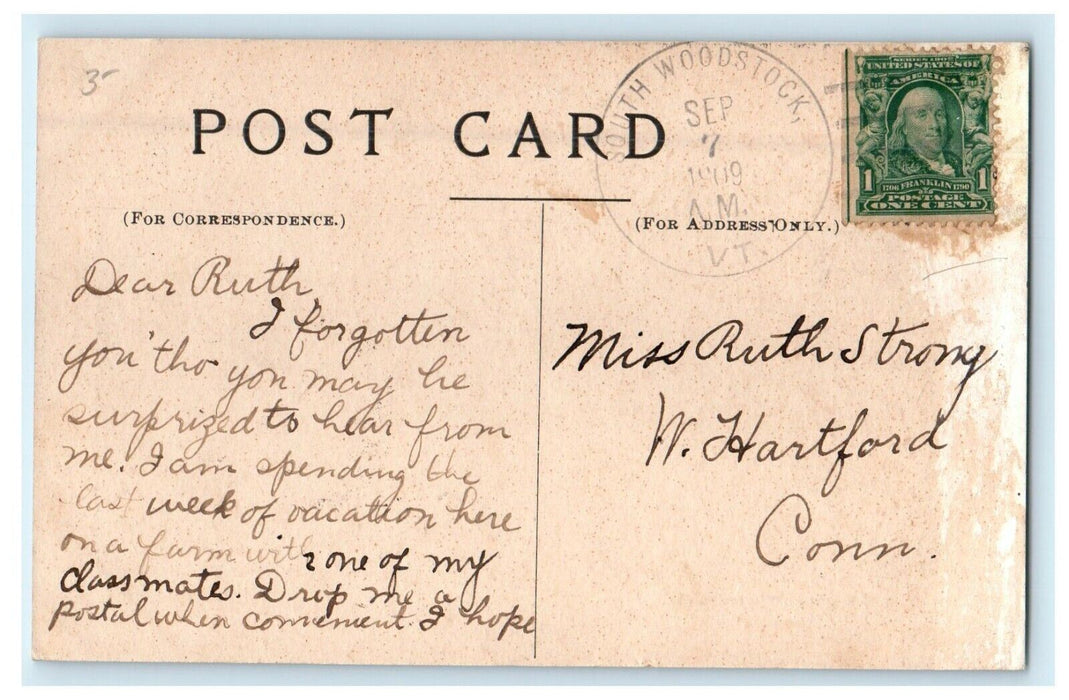 35
POST CARD
(FOR CORRESPONDENCE.)
(FOR ADDRESS ONLY.)
SOUTH WOODSTOCK,
SEP
7
1909
A.M.
VT.
SERIES 1902
UNITED STATES OF
AMERICA
1 1706 FRANKLIN 1790 1
POSTAGE
ONE CENT
Dear Ruth
I forgotten
you 'tho you may be
surprized to hear from
me. I am spending the
last week of vacation here
on a farm with one of my
classmates. Drop me a
postal when convenient. I hope
Miss Ruth Strong
W. Hartford
Conn.